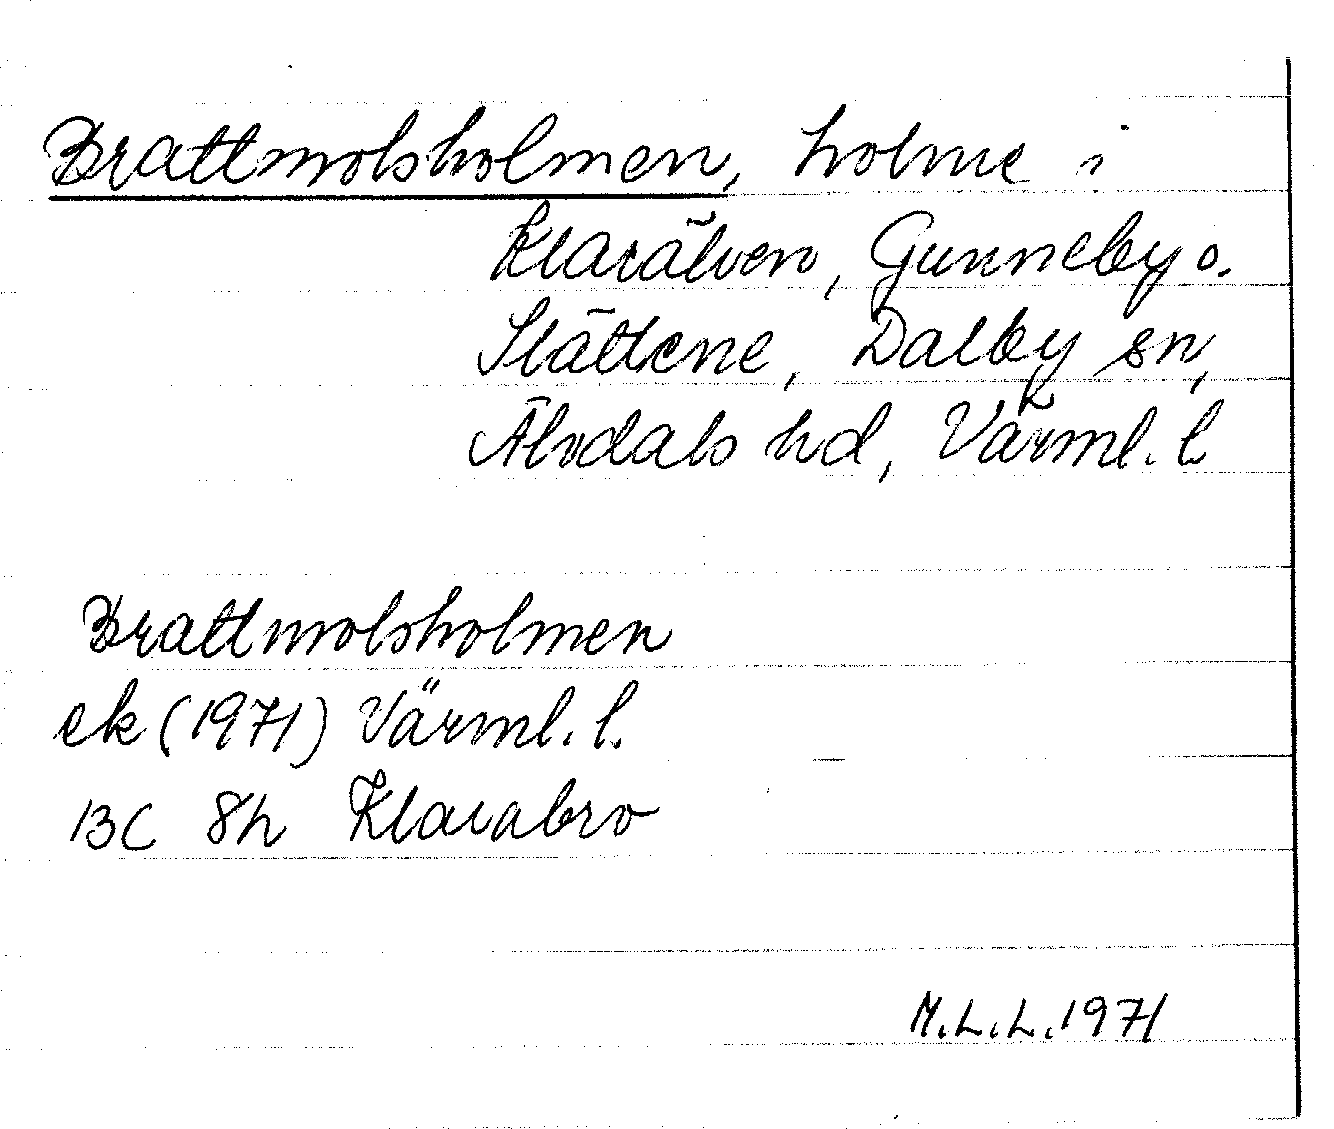 Brattmolsholmen, holme i
Klarälven, Gunneby o.
Slättene, Dalby sn,
Älvdals hd, Värml. l
Brattmolsholmen
ek (1971) Värml. l.
13C 8h Klarabro
M.L.L. 1971